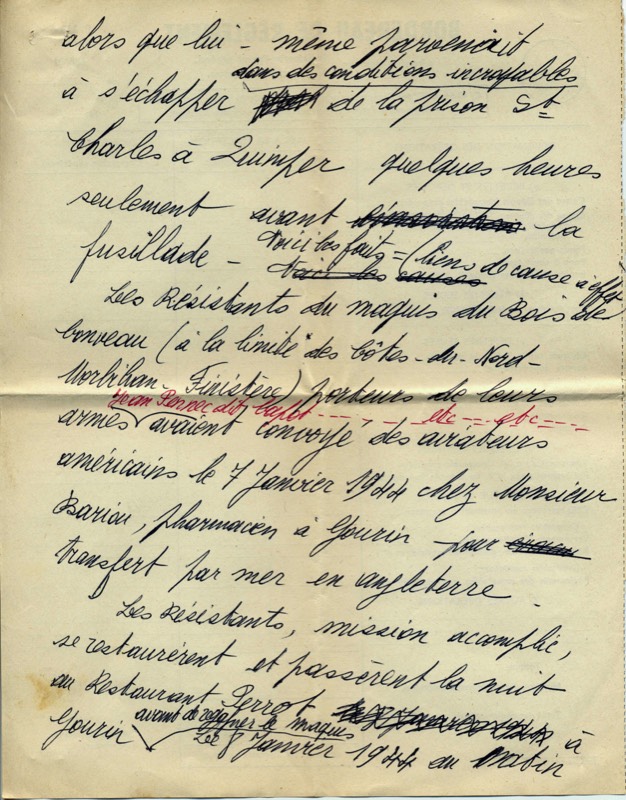 alors que lui - même parvenait
dans des conditions incroyables
à s'échapper de la prison St
Charles à Quimper quelques heures
seulement avant la
Voici les faits = (liens de cause à effet
fusillade - Voici les causes
Les Résistants du maquis du Bois de
Conveau (à la limite des Côtes-du-Nord-
Morbihan - Finistère) porteurs de leurs
Jean Pennec dit etc --- etc ---
armes avaient convoyé des aviateurs
américains le 7 Janvier 1944 chez Monsieur
Bariou, pharmacien à Gourin pour
transfert par mer en angleterre.
Les Résistants, mission accomplie,
se restaurèrent et passèrent la nuit
au Restaurant Perrot à
avant de regagner le maquis
Gourin Le 8 Janvier 1944 au matin